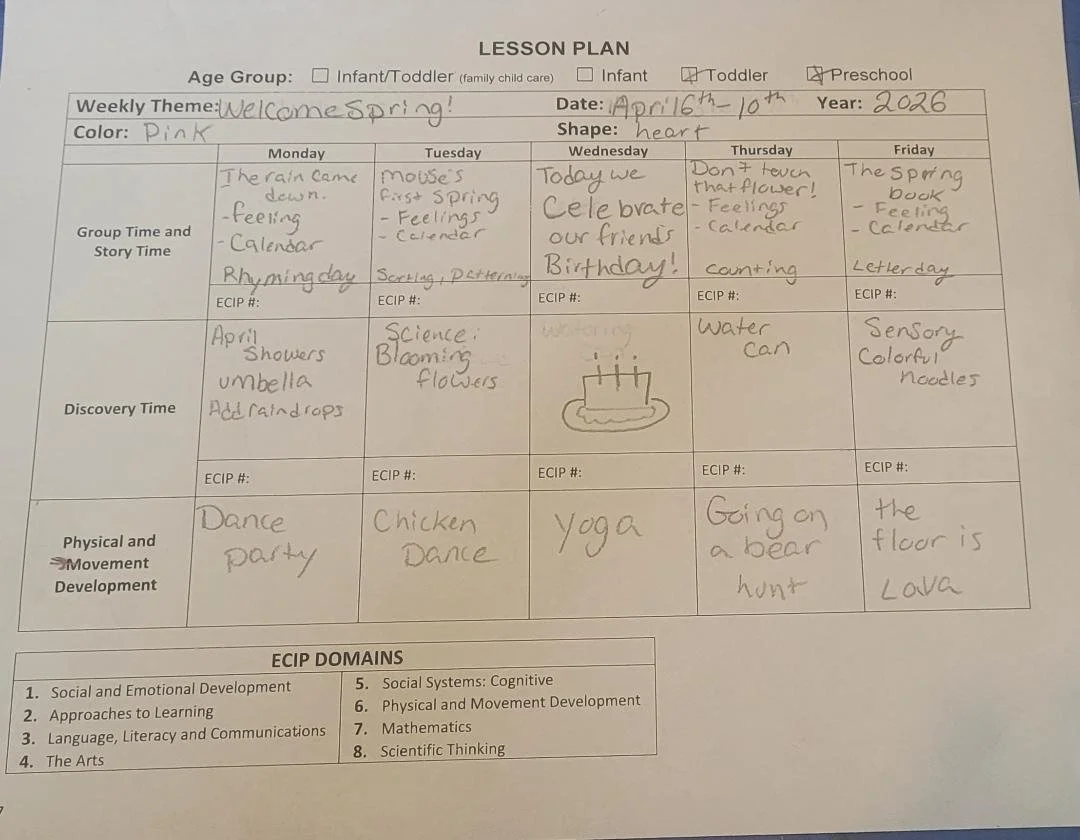 LESSON PLAN
Age Group: Infant/Toddler (family child care) Infant Toddler Preschool
Weekly Theme: Welcome Spring! Date: April 6th - 10th Year: 2026
Color: Pink Shape: heart
Monday Tuesday Wednesday Thursday Friday
Group Time and
Story Time
The rain came
down.
- feeling
- Calendar
Rhyming day
ECIP #:
mouse's
first spring
- Feelings
- Calendar
Sorting, Patterning
ECIP #:
Today we
Celebrate
our friends
Birthday!
ECIP #:
Don't touch
that flower!
- Feelings
- Calendar
counting
ECIP #:
The Spring
book
- Feeling
- Calendar
Letter day
ECIP #:
Discovery Time
April
Showers
umbella
Add raindrops
ECIP #:
Science:
Blooming
flowers
ECIP #:
Watering
ECIP #:
Water
can
ECIP #:
Sensory
Colorful
noodles
ECIP #:
Physical and
Movement
Development
Dance
party
Chicken
Dance
Yoga
Going on
a bear
hunt
the
floor is
Lava
ECIP DOMAINS
1. Social and Emotional Development
2. Approaches to Learning
3. Language, Literacy and Communications
4. The Arts
5. Social Systems: Cognitive
6. Physical and Movement Development
7. Mathematics
8. Scientific Thinking